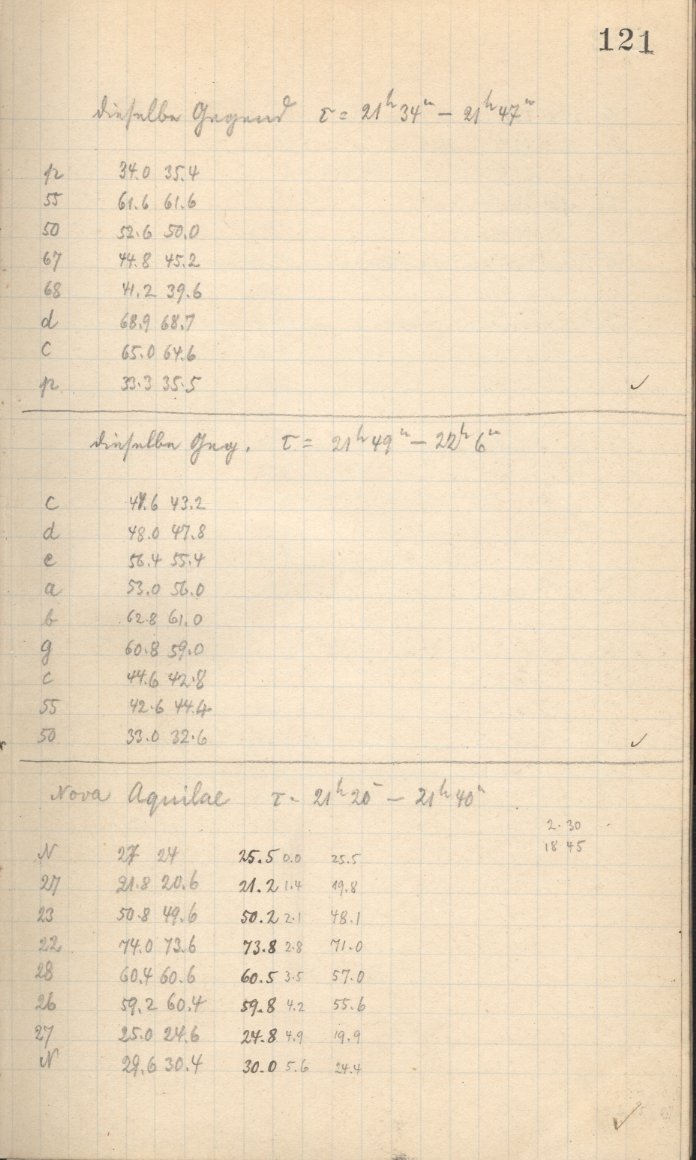 121
dieselbe Gegend τ = 21ʰ 34ᵐ – 21ʰ 47ᵐ
p 34.0 35.4
55 61.6 61.6
50 52.6 50.0
67 44.8 45.2
68 41.2 39.6
d 68.9 68.7
c 65.0 64.6
p 33.3 35.5 ✓
dieselbe Geg. τ = 21ʰ 49ᵐ – 22ʰ 6ᵐ
c 43.2
d 48.0 47.8
e 56.4 55.4
a 53.0 56.0
b 62.8 61.0
g 60.8 59.0
c 44.6 42.8
55 42.6 44.4
50 33.0 32.6 ✓
Nova Aquilae τ = 21ʰ 20ᵐ – 21ʰ 40ᵐ
2.30
18 45
N 27 24 25.5 0.0 25.5
27 21.8 20.6 21.2 1.4 19.8
23 50.8 49.6 50.2 2.1 48.1
22 74.0 73.6 73.8 2.8 71.0
28 60.4 60.6 60.5 3.5 57.0
26 59.2 60.4 59.8 4.2 55.6
27 25.0 24.6 24.8 4.9 19.9
N 29.6 30.4 30.0 5.6 24.4
✓